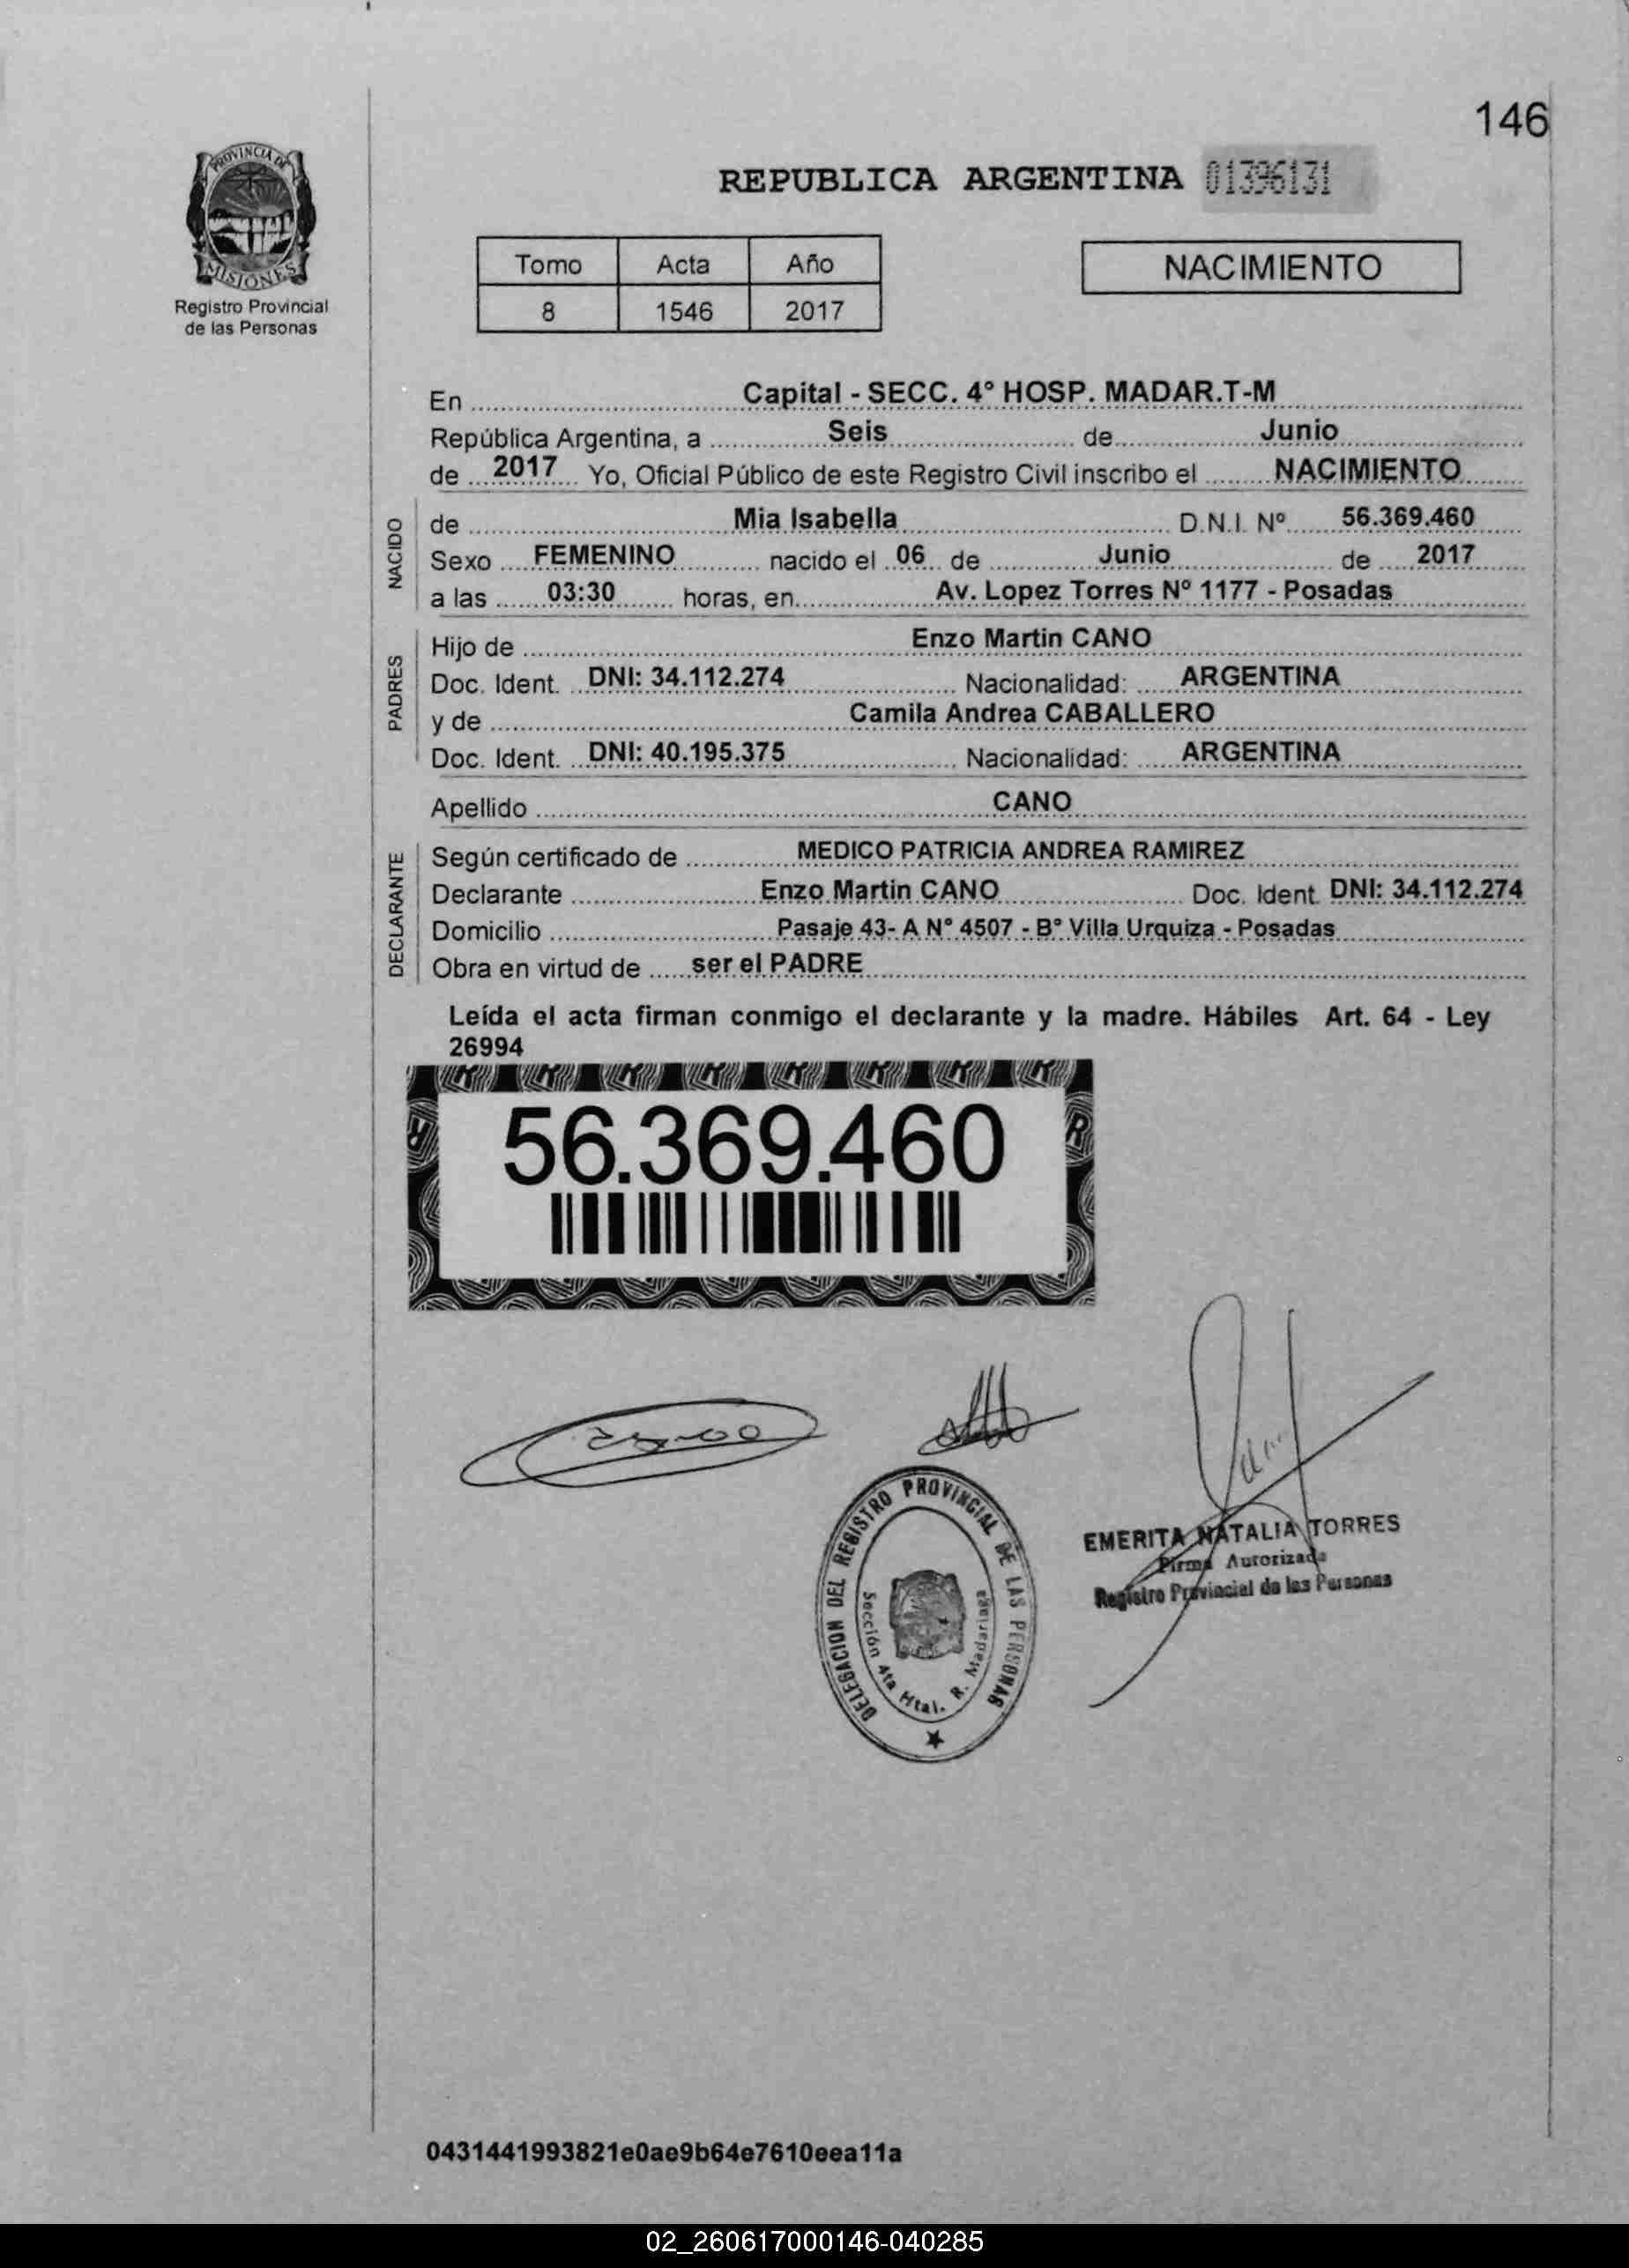 146
PROVINCIA DE
MISIONES
Registro Provincial
de las Personas
REPUBLICA ARGENTINA 01396131
Tomo Acta Año
8 1546 2017
NACIMIENTO
En Capital - SECC. 4° HOSP. MADAR.T-M
República Argentina, a Seis de Junio
de 2017 Yo, Oficial Público de este Registro Civil inscribo el NACIMIENTO
NACIDO
de Mia Isabella D.N.I. Nº 56.369.460
Sexo FEMENINO nacido el 06 de Junio de 2017
a las 03:30 horas, en Av. Lopez Torres Nº 1177 - Posadas
PADRES
Hijo de Enzo Martin CANO
Doc. Ident. DNI: 34.112.274 Nacionalidad: ARGENTINA
y de Camila Andrea CABALLERO
Doc. Ident. DNI: 40.195.375 Nacionalidad: ARGENTINA
Apellido CANO
DECLARANTE
Según certificado de MEDICO PATRICIA ANDREA RAMIREZ
Declarante Enzo Martin CANO Doc. Ident. DNI: 34.112.274
Domicilio Pasaje 43- A N° 4507 - B° Villa Urquiza - Posadas
Obra en virtud de ser el PADRE
Leída el acta firman conmigo el declarante y la madre. Hábiles Art. 64 - Ley
26994
56.369.460
DELEGACION DEL REGISTRO PROVINCIAL DE LAS PERSONAS
Sección 4ta Htal. R. Madariaga
EMERITA NATALIA TORRES
Firma Autorizada
Registro Provincial de las Personas
0431441993821e0ae9b64e7610eea11a
02_260617000146-040285